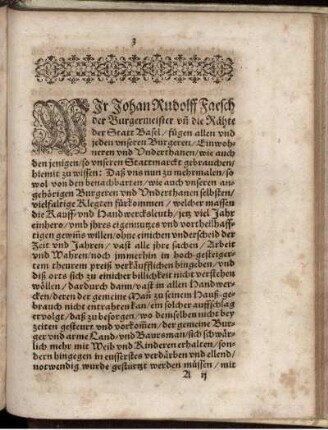 3
WIr Johan Rudolff Faesch
der Burgermeister vñ die Rähte
der Statt Basel / fügen allen vnd
jeden vnseren Burgeren / Einwoh-
neren vnd Vnderthanen / wie auch
den jenigen / so vnseren Stattmarckt gebrauchen /
hiemit zu wissen: Daß vns nun zu mehrmalen / so
wol von den benachbarten / wie auch vnseren an-
gehörigen Burgeren vnd Vnderthanen selbsten /
vielfaltige Klegten fürkommen / welcher massen
die Kauff- vnd Handwercksleuth / jetz viel Jahr
einhero / vmb jhres eigennutzes vnd vortheilhaff-
tigen gewiñs willen / ohne einichen vnderscheid der
Zeit vnd Jahren / vast alle jhre sachen / Arbeit
vnd Wahren / noch immerhin in hoch-gesteiger-
tem thewrem preiß verkäufflichen hingeben / vnd
diß orts sich zu einicher billichkeit nicht verstehen
wöllen / dardurch dann / vast in allen Handwer-
cken / deren der gemeine Mañ zu seinem Hauß-ge-
brauch nicht entrahten kan / ein solcher auffschlag
ervolgt / daß zu besorgen / wo demselben nicht bey
zeiten gestewrt vnd vorkom̃en / der gemeine Bur-
ger vnd arme Land- vnd Baursman / sich schwär-
lich mehr mit Weib vnd Kinderen erhalten / son-
dern hingegen in eusserstes verdärben vnd ellend /
notwendig wurde gestürtzt werden müssen / mit
A ij